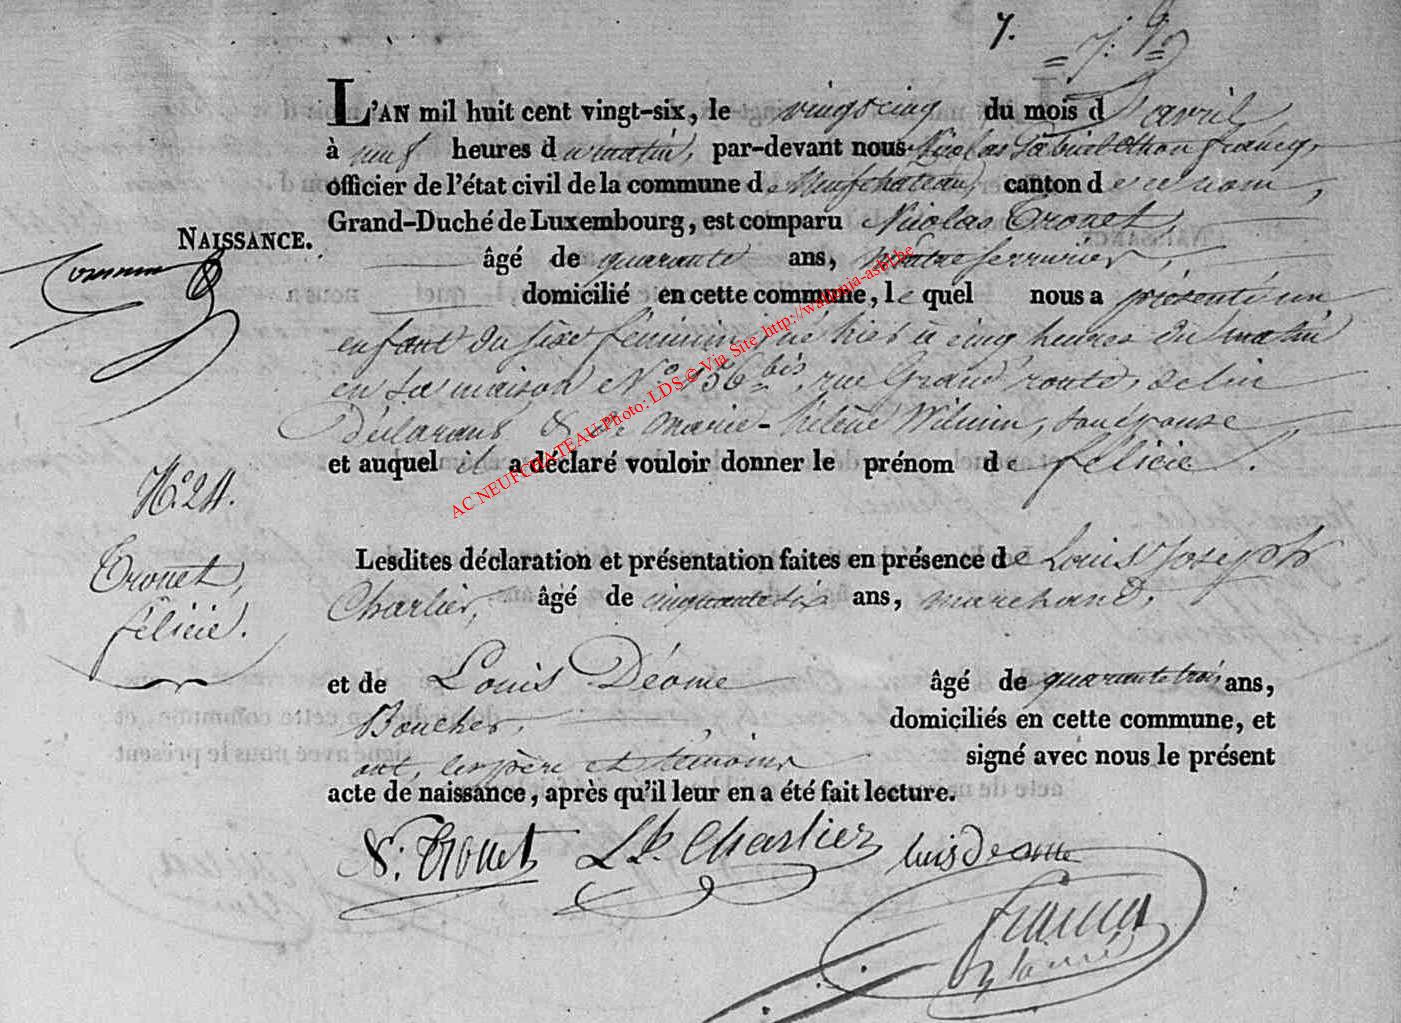 7.
7: 9
L'AN mil huit cent vingt-six, le vingtcinq du mois d'avril
à neuf heures du matin, par-devant nous Nicolas Gabriel Othon francq,
officier de l'état civil de la commune de Neufchateau, canton de ce nom,
Grand-Duché de Luxembourg, est comparu Nicolas Tronet,
NAISSANCE.
âgé de quarante ans, maître serrurier,
domicilié en cette commune, le quel nous a présenté un
enfant du sèxe féminin, né hier à cinq heures du matin
en sa maison No. 156 bis, rue Grand' route, de lui
déclarant & de marie-hélène Wilmin, son épouse,
et auquel il a déclaré vouloir donner le prénom de félicie.
No. 24.
Tronet,
félicie.
Lesdites déclaration et présentation faites en présence de Louis Joseph
Charlier, âgé de cinquante six ans, marchand,
et de Louis Déome âgé de quarante trois ans,
Boucher, domiciliés en cette commune, et
ont, les père et témoins signé avec nous le présent
acte de naissance, après qu'il leur en a été fait lecture.
N: Tronet LJh. Charlier luis deome
francq
AC NEUFCHATEAU Photo: LDS © Via Site http://wallonia-asbl.be